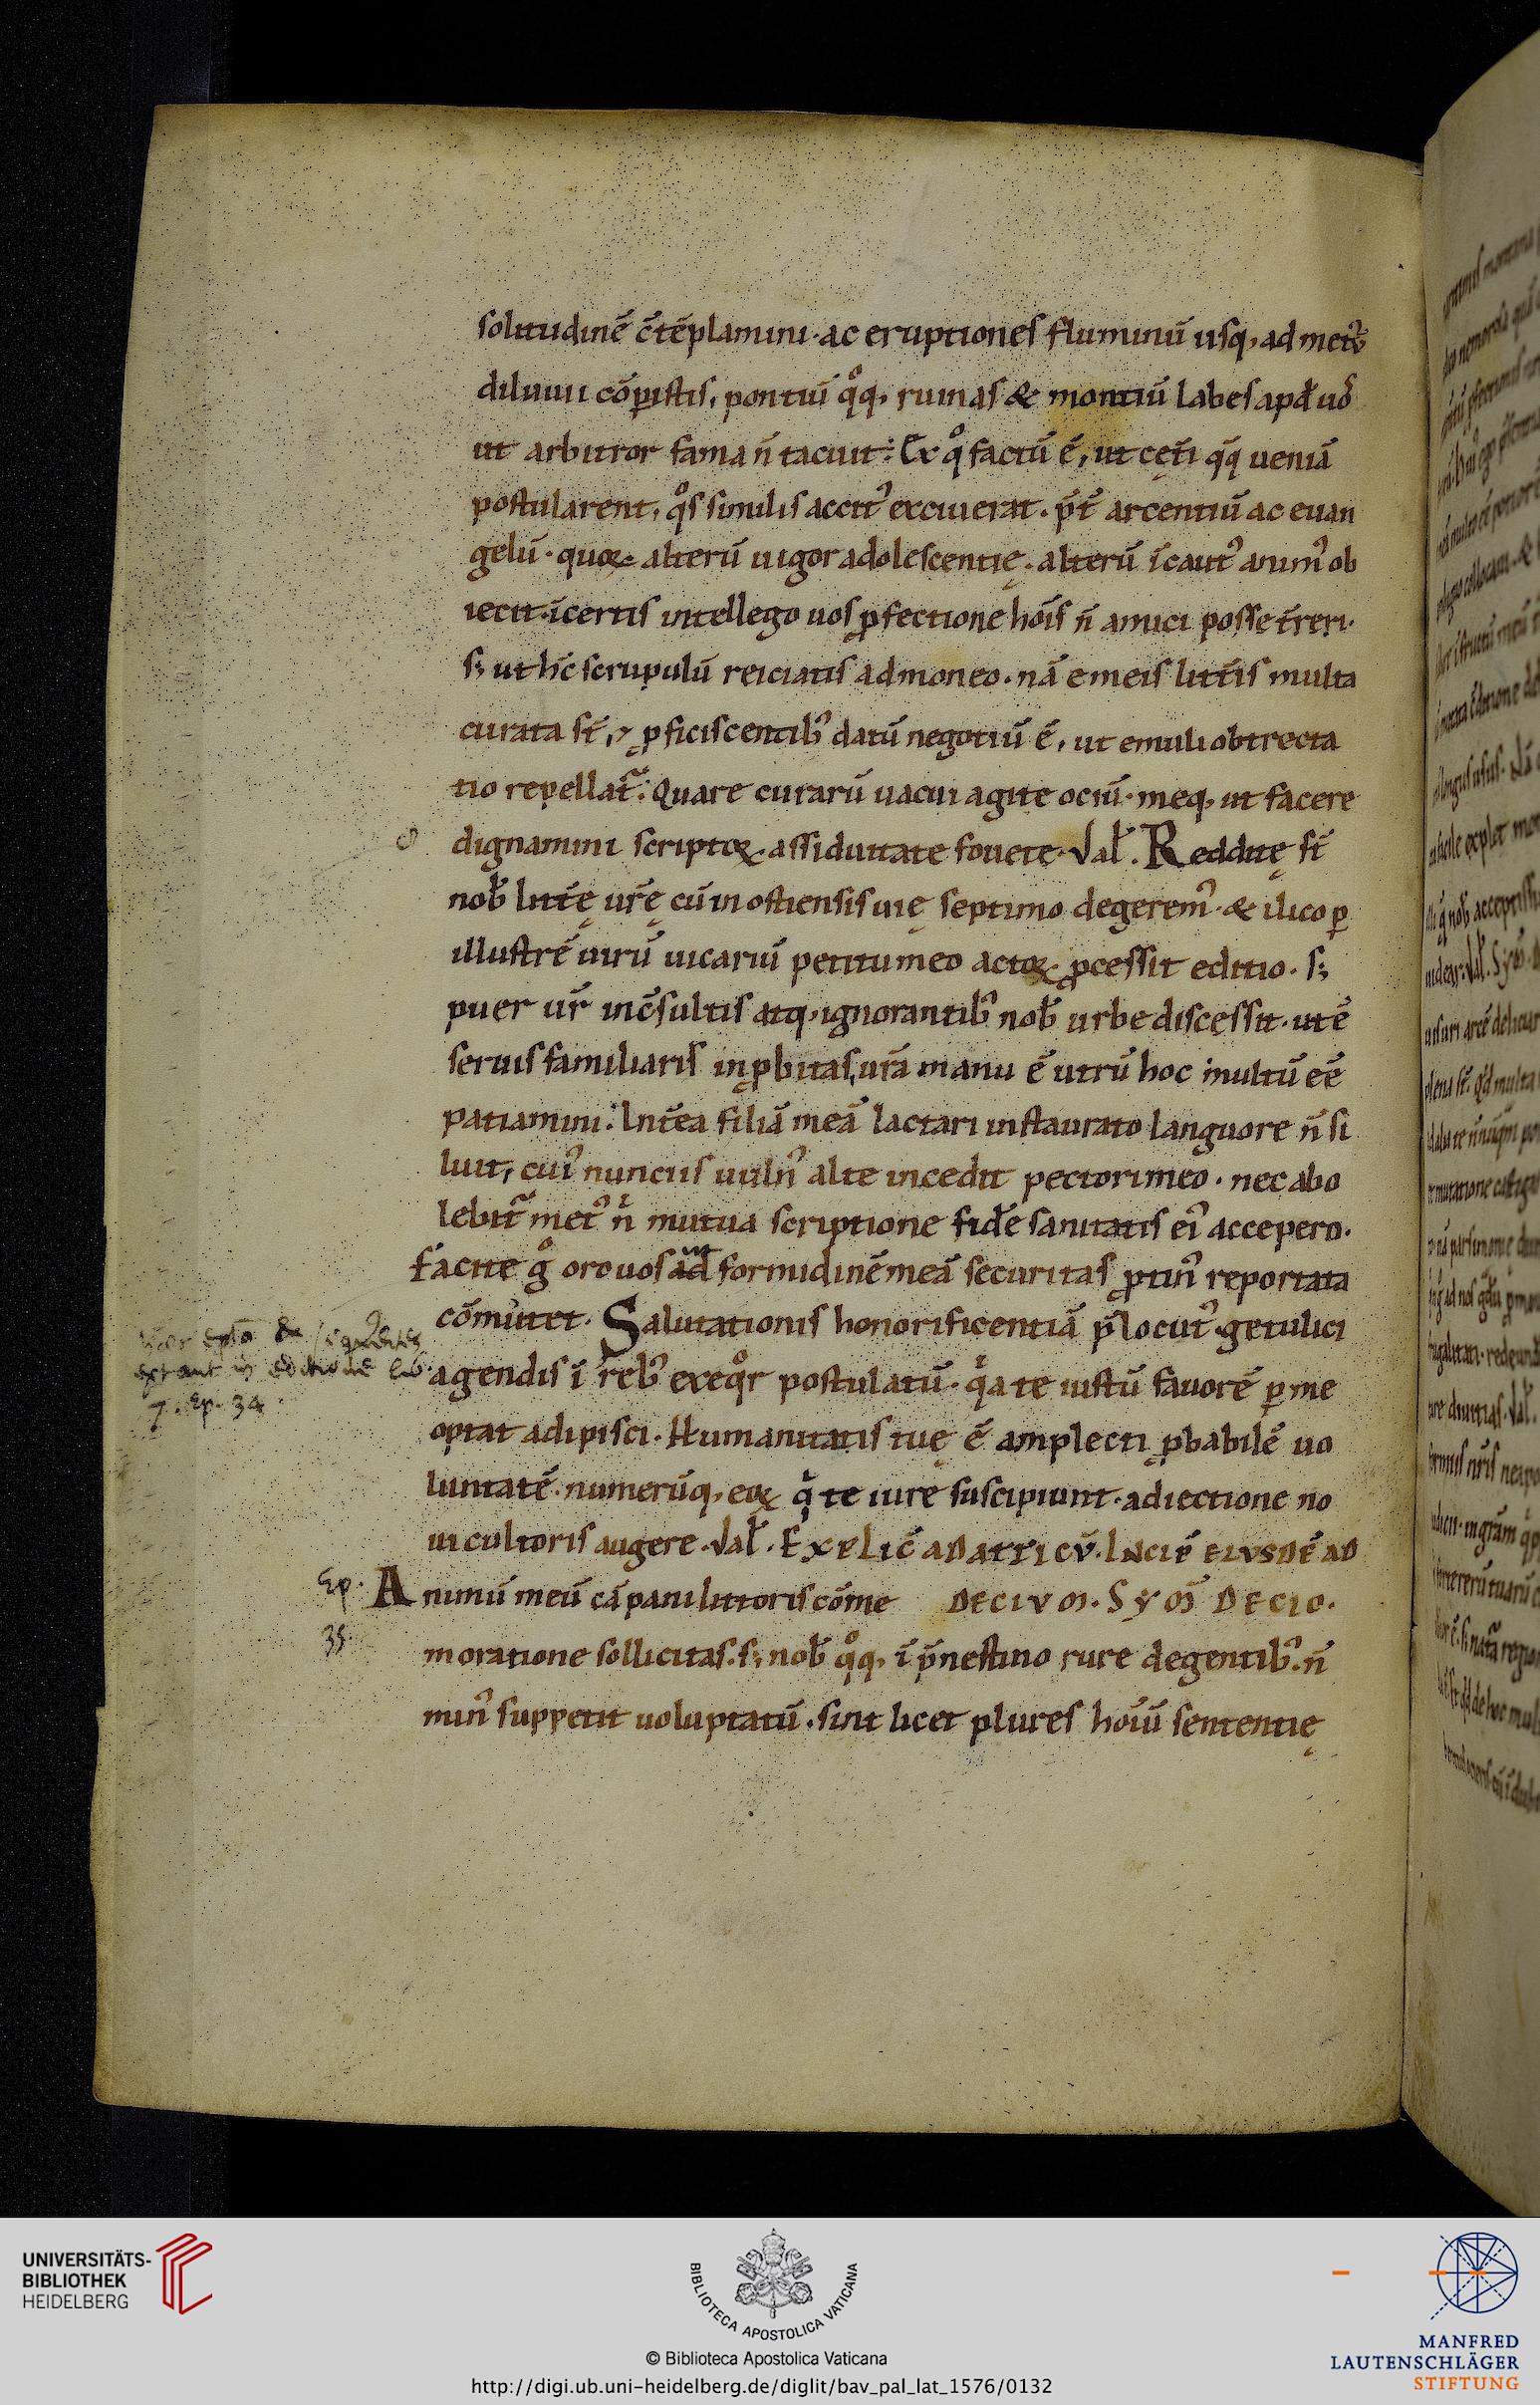 solitudinē c̄tēplamini · ac eruptiones fluminū usq; ad met᷒
diluuii cōꝑistis, pontiū qͦq; ruinas & montiū labes apd̄ uos
ut arbitror fama n̄ tacuit: Ex qͦ factū ē, ut cęt̄i qq̄ ueniā
postularent, qͦs similis accit᷒ exciuerat. p̄t̄ arcentiū ac euan
gelū · quoꝝ alterū uigor adolescentię · alterū īcaut᷒ anim᷒ ob
iecit · īcertis intellego uos ꝓfectione hoīs n̄ amici posse t̄reri ·
s; ut hc̄ scrupulū reiciatis admoneo · nā e meis litt̄is multa
curata st̄, ⁊ ꝓficiscentib᷒ datū negotiū ē, ut emuli obtrecta
tio repellat᷑: Quare curarū uacui agite ociū · meq; ut facere
dignamini scriptoꝝ assiduitate fouete · Val̄ . Redditę st̄
nob̄ litt̄ę ur̄ę cū in ostiensis uię septimo degerem᷒ · & ilico ꝑ
illustrē uirū uicariū petitu meo actoꝝ ꝓcessit editio · s;
puer ur̄ inc̄sultis atq; ignorantib᷒ nob̄ urbe discessit · ut ē
seruis familiaris inꝓbitas, ur̄a manu ē utrū hoc inultū eē
patiamini: Int̄ea filiā meā lactari instaurato languore n̄ si
luit, cui᷒ nunciis uuln᷒ alte incedit pectori meo · nec abo
lebit᷑ met᷒ nͥ mutua scriptione fidē sanitatis ei᷒ accepero ·
facite gͦ oro uos ad ut formidinē meā securitas ꝓtin᷒ reportata
cōmutet · Salutationis honorificentiā p̄locut᷒ · getulici
agendis ī reb᷒ exeqͦr postulatū · qͥa te iustū fauorē ꝑ me
optat adipisci · Humanitatis tuę ē amplecti ꝓbabilē uo
luntatē · numerūq; eoꝝ qͥ te iure suscipiunt · adiectione no
ui cultoris augere · Val̄ . EXPLIC̄ AD ATTICV̄ · INCIP̄ EIVSDĒ AD
Animū meū cāpani littoris cōme DECIVM · SYM̄ DECIO ·
moratione sollicitas · s; nob̄ qͦq; ī p̄nestino rure degentib᷒ · n̄
min᷒ suppetit uoluptatū · sint licet plures hoīū sententię
extant in editione lib.
7. Ep. 34
Ep.
35.
UNIVERSITÄTS-
BIBLIOTHEK
HEIDELBERG
BIBLIOTECA APOSTOLICA VATICANA
© Biblioteca Apostolica Vaticana
http://digi.ub.uni-heidelberg.de/diglit/bav_pal_lat_1576/0132
MANFRED
LAUTENSCHLÄGER
STIFTUNG